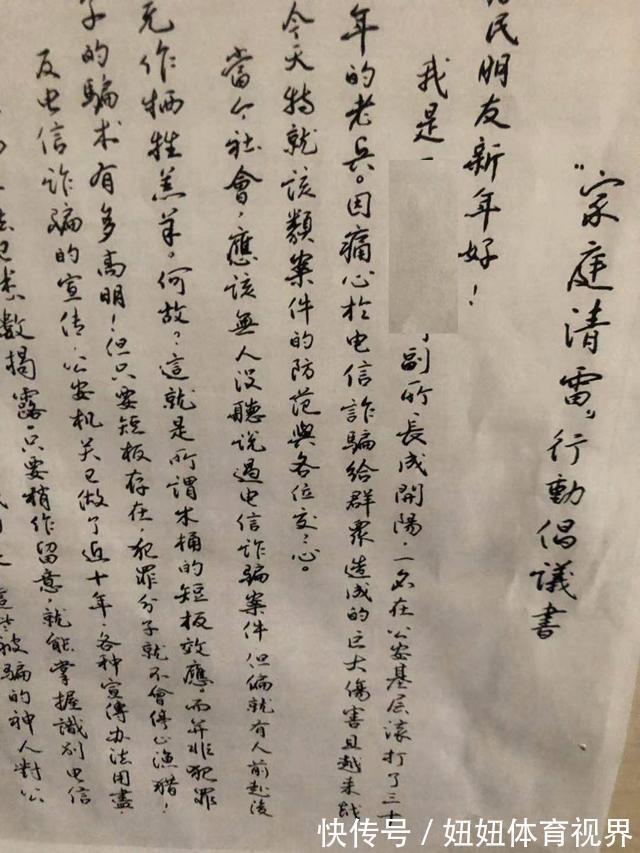 "家庭清雷"行動倡議書
民朋友新年好！
我是 副所長成開陽，一名在公安基层滚打了三十
年的老兵。因痛心於电信詐騙給群眾造成的巨大傷害且越来越
今天特就該類案件的防范與各位交:心。
當今社會，應該無人没聽説過电信诈騙案件但偏就有人前赴後
充作牺牲羔羊。何故？這就是所謂木桶的短板效應。而并非犯罪
子的騙术有多高明！但只要短板存在，犯罪分子就不會停止渔猎！
反电信诈骗的宣传，公安机关已做了近十年，各种宣傳办法用盡，
已悉數揭露，只要稍作留意，就能掌握識别电信
這些被騙的神人對公
快传号／妞妞体育视界